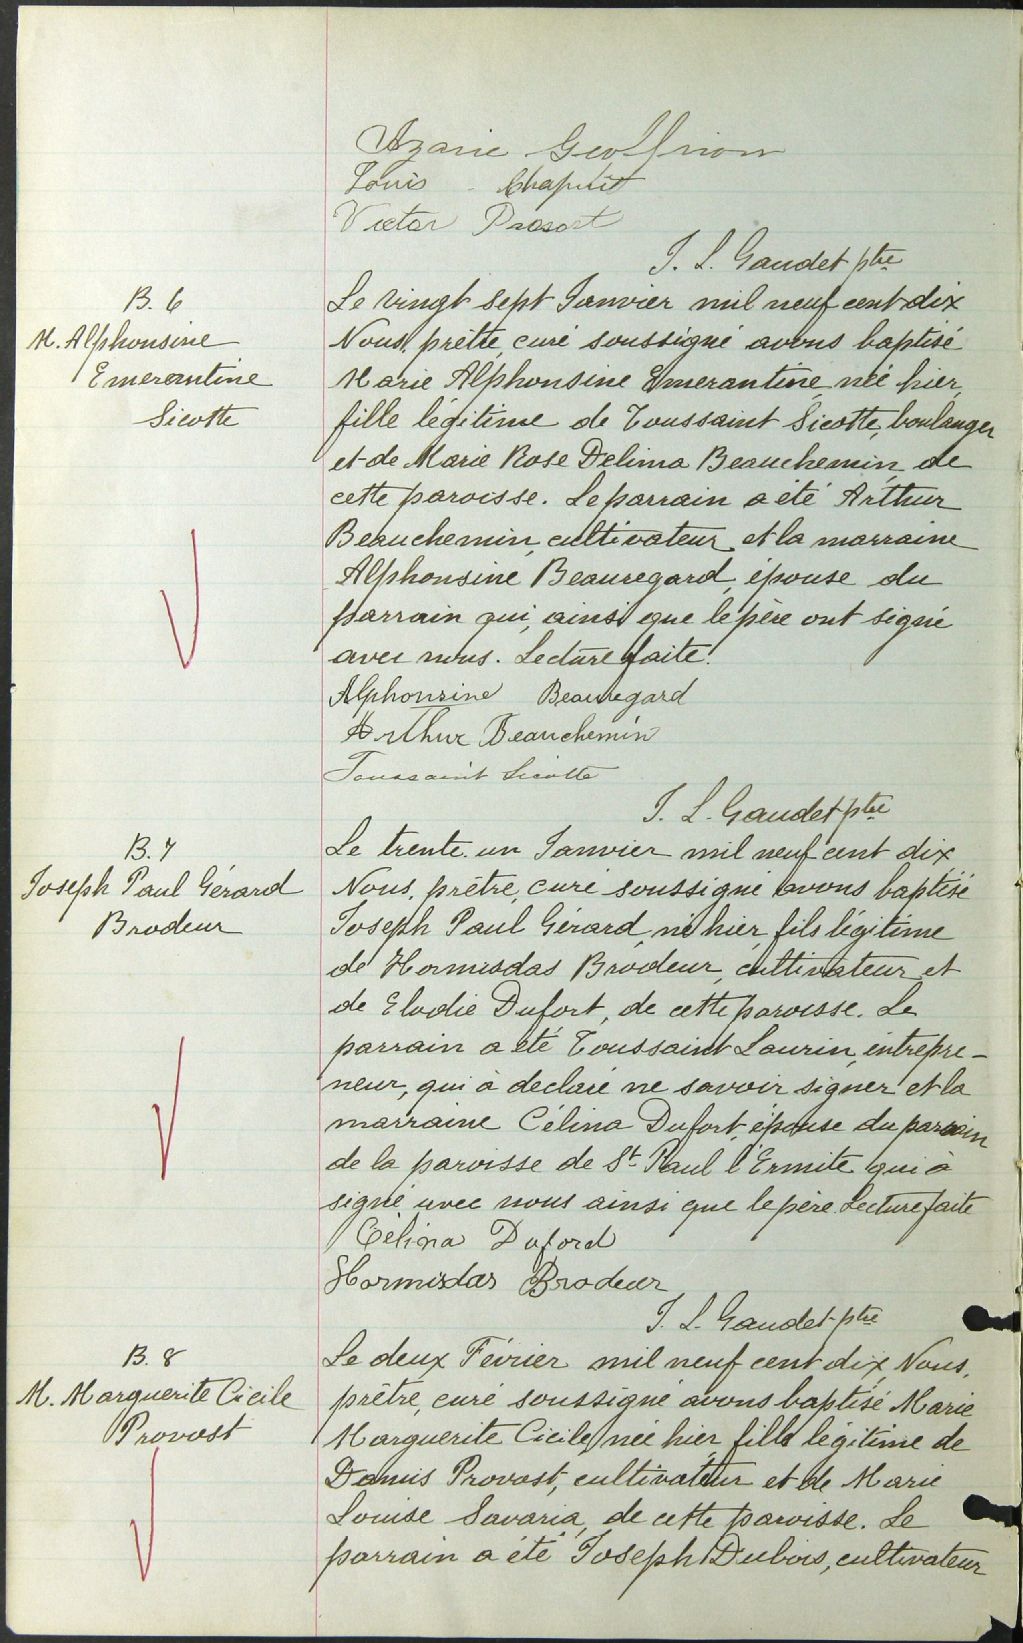 Azarie Geoffrion
Louis Chaput
Victor Provost
J. L. Gaudet ptre
B. 6
M. Alphonsine
Emerantine
Sicotte
Le vingt sept Janvier mil neuf cent dix
Nous, prêtre, curé soussigné avons baptisé
Marie Alphonsine Emerantine, née hier,
fille légitime de Toussaint Sicotte, boulanger
et de Marie Rose Delima Beauchemin, de
cette paroisse. Le parrain a été Arthur
Beauchemin, cultivateur, et la marraine
Alphonsine Beauregard, épouse du
parrain qui, ainsi que le père ont signé
avec nous. Lecture faite.
Alphonsine Beauregard
Arthur Beauchemin
Toussaint Sicotte
J. L. Gaudet ptre
B. 7
Joseph Paul Gérard
Brodeur
Le trente un Janvier mil neuf cent dix
Nous, prêtre, curé soussigné avons baptisé
Joseph Paul Gérard, né hier, fils légitime
de Hormisdas Brodeur, cultivateur et
de Elodie Dufort, de cette paroisse. Le
parrain a été Toussaint Laurin, entrepre-
neur, qui à declaré ne savoir signer et la
marraine Célina Dufort, épouse du parrain
de la paroisse de St Paul l'Ermite qui à
signé avec nous ainsi que le père. Lecture faite
Célina Duford
Hormisdas Brodeur
J. L. Gaudet ptre
B. 8
M. Marguerite Cicile
Provost
Le deux Février mil neuf cent dix, Nous,
prêtre, curé soussigné avons baptisé Marie
Marguerite Cicile, née hier, fille légitime de
Damis Provost, cultivateur et de Marie
Louise Savaria, de cette paroisse. Le
parrain a été Joseph Dubois, cultivateur